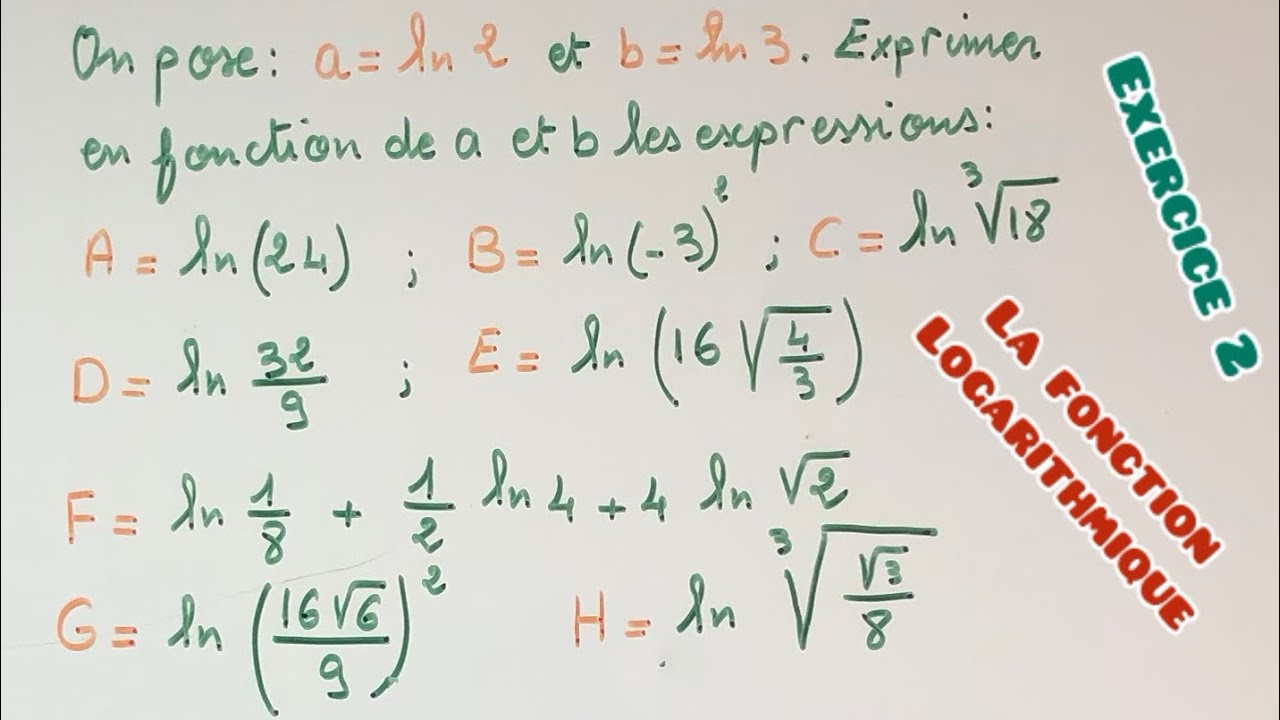 On pose: a = ln 2 et b = ln 3. Exprimer
en fonction de a et b les expressions:
A = ln(24) ; B = ln(-3)² ; C = ln ∛18
D = ln 32/9 ; E = ln (16 √(4/3))
F = ln 1/8 + 1/2 ln 4 + 4 ln √2
G = ln (16√6/9)² H = ln ∛(√3/8)
EXERCICE 2
LA FONCTION
LOGARITHMIQUE